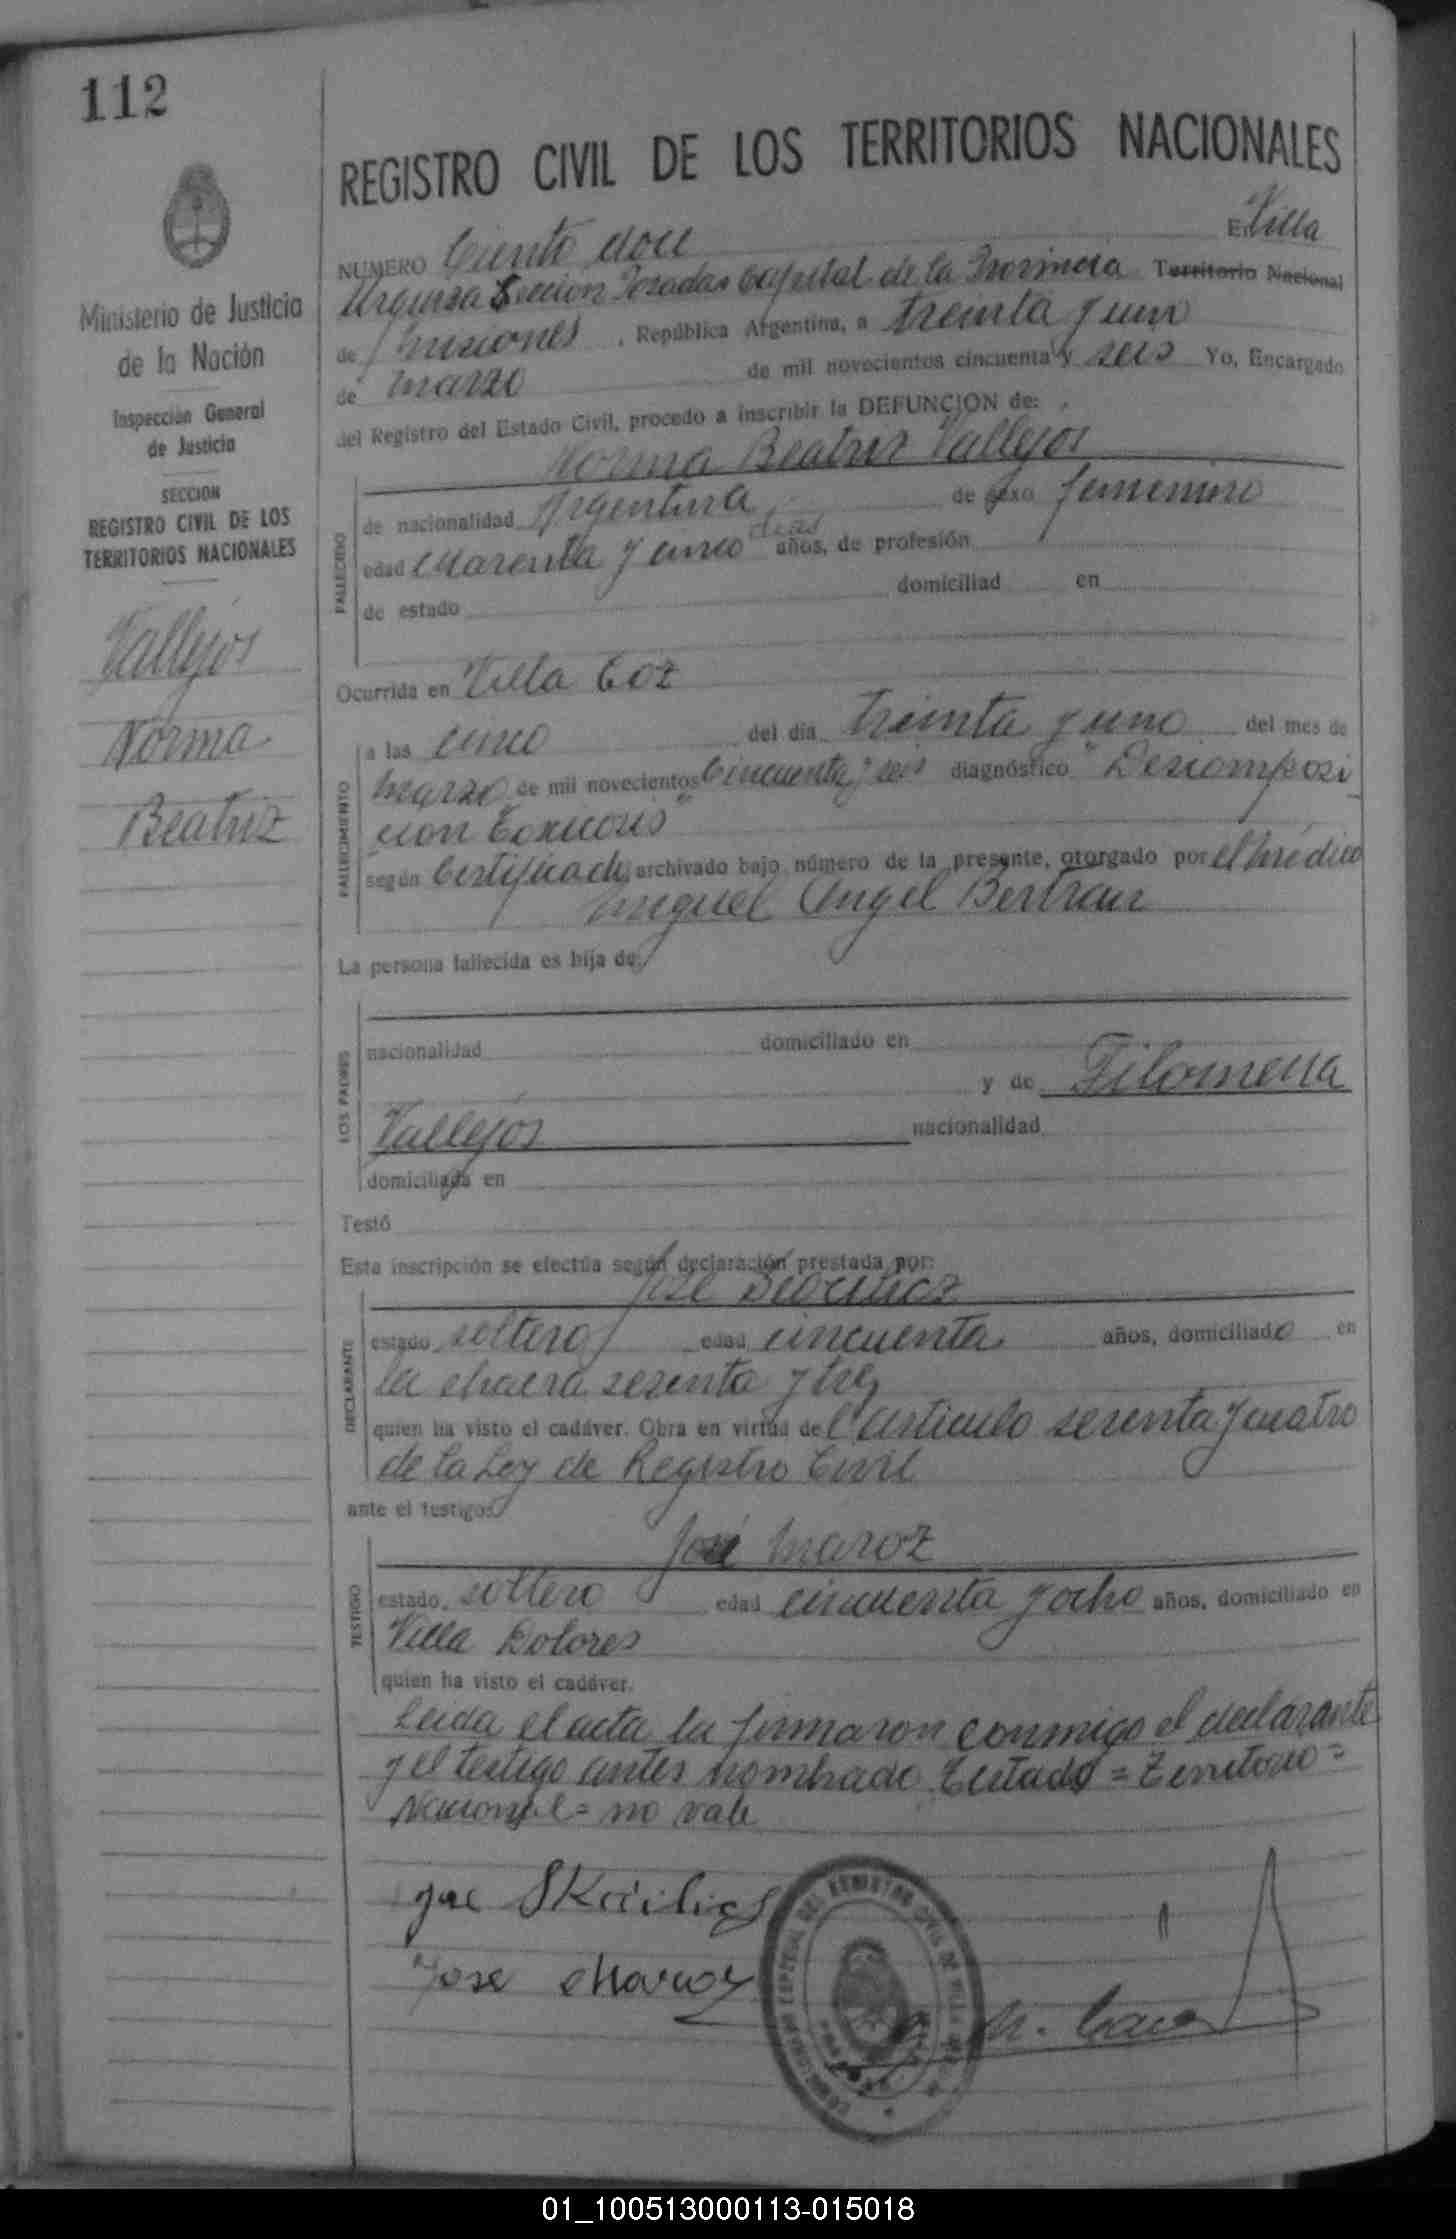 112
REGISTRO CIVIL DE LOS TERRITORIOS NACIONALES
Ministerio de Justicia
de la Nación
Inspección General
de Justicia
SECCION
REGISTRO CIVIL DE LOS
TERRITORIOS NACIONALES
Vallejos
Norma
Beatriz
NUMERO Ciento doce En Villa
Urquiza Seccion Posadas Capital de la Provincia Territorio Nacional
de Misiones, República Argentina, a treinta y uno
de marzo de mil novecientos cincuenta y seis Yo, Encargado
del Registro del Estado Civil, procedo a inscribir la DEFUNCION de:
Norma Beatriz Vallejos
FALLECIDO
de nacionalidad Argentina de sexo femenino
dias
edad cuarenta y cinco años, de profesión
de estado domiciliad en
Ocurrida en Villa Coz
FALLECIMIENTO
a las cinco del dia treinta y uno del mes de
marzo de mil novecientos cincuenta y seis diagnóstico "Descomposi
cion Toxicosis"
según Certificado archivado bajo número de la presente, otorgado por el médico
Miguel Angel Bertran
La persona fallecida es hija de:
LOS PADRES
nacionalidad domiciliado en
y de Filomena
Vallejos nacionalidad
domiciliada en
Testó
Esta inscripción se efectúa según declaración prestada por:
José
DECLARANTE
estado soltero edad cincuenta años, domiciliado en
la chacra sesenta y tres
quien ha visto el cadáver. Obra en virtud del articulo sesenta y cuatro
de la Ley de Registro Civil
ante el testigo:
José Maroz
TESTIGO
estado soltero edad cincuenta y ocho años, domiciliado en
Villa Dolores
quien ha visto el cadáver.
Leida el acta la firmaron conmigo el declarante
y el testigo antes nombrado. Testado = Territorio =
Nacional = no vale
Jose
Jose Maroz
01_100513000113-015018